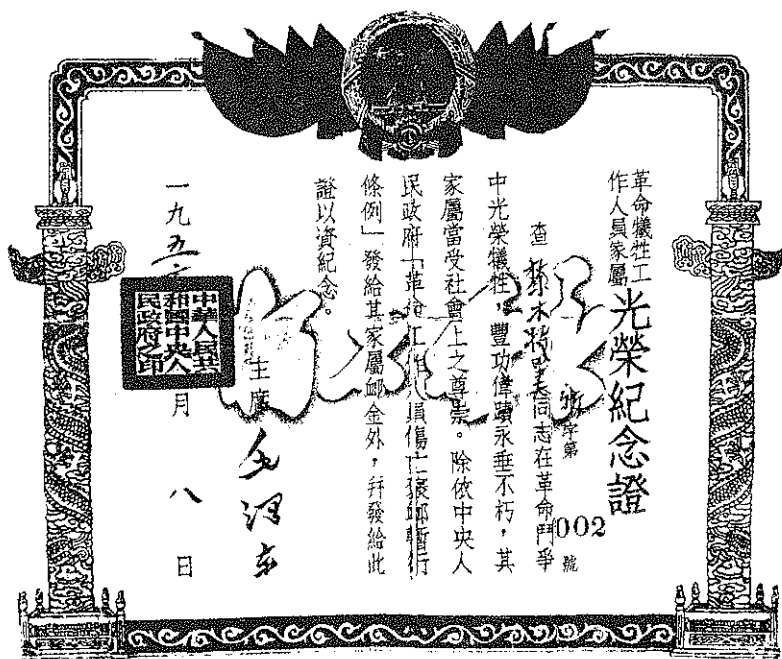 革命犧牲工
作人員家屬
光榮紀念證
新字第002號
查 同志在革命鬥爭
中光榮犧牲,豐功偉蹟永垂不朽,其
家屬當受社會上之尊崇。除依中央人
民政府「革命工作人員傷亡褒卹暫行
條例」發給其家屬卹金外,幷發給此
證以資紀念。
主席 毛澤東
一九五 月八日
中華人民共
和國中央人
民政府之印